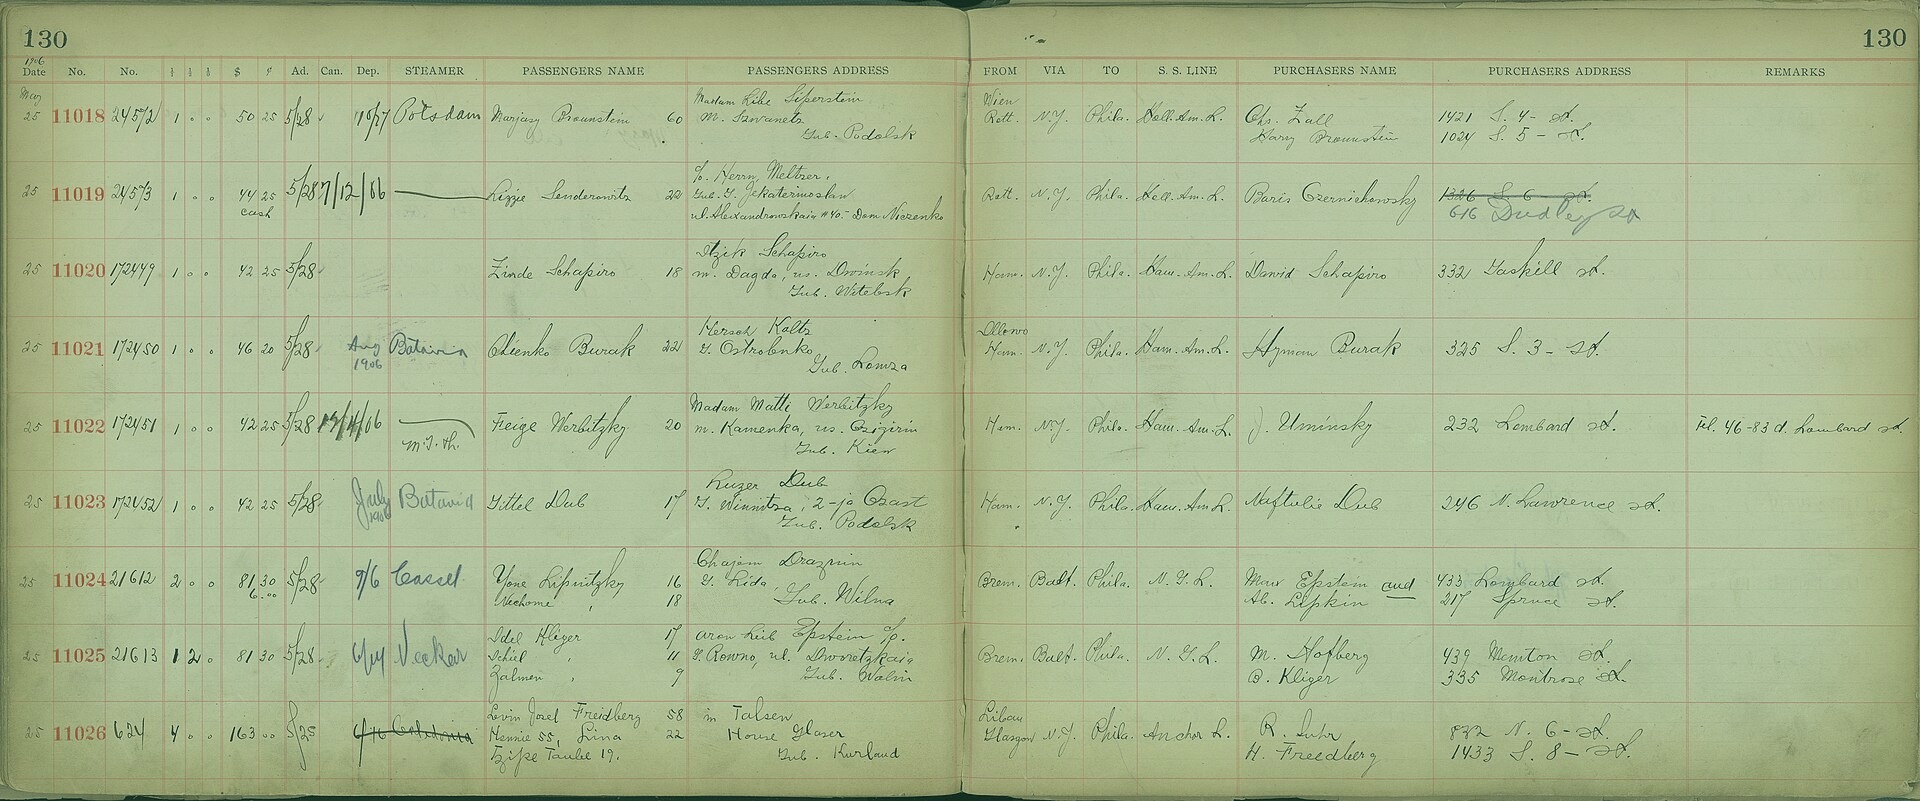 130
130
1906
Date No. No. $ ¢ Ad. Can. Dep. STEAMER PASSENGERS NAME PASSENGERS ADDRESS FROM VIA TO S. S. LINE PURCHASERS NAME PURCHASERS ADDRESS REMARKS
May
Madam Libe Siperstein Wien
25 11018 24572 1 0 0 50 25 5/28 10/27 Potsdam Marjasy Braunstein 60 Rott. N.Y. Phila. Holl. Am. L. Chs. Zall 1421 S. 4 - St.
Gub. Podolsk Harry Braunstein 1024 S. 5 - St.
c/o. Herrn Meltzer,
25 11019 24573 1 0 0 44 25 5/28 7/12/06 Lizzie Senderowitz 22 Gub. G. Jekaterinoslaw Rott. N.Y. Phila. Holl. Am. L. Boris Czernichowsky 1326 S. 6 St.
cash ul. Alexandrowskaia #40 - Dom Niczenko 616 Dudley St
Itzik Schapiro
25 11020 172449 1 0 0 42 25 5/28 Zinde Schapiro 18 m. Dagda, us. Dwinsk Ham. N.Y. Phila. Ham. Am. L. David Schapiro 332 Gaskill St.
Gub. Witebsk
Hersch Kaltz
25 11021 172450 1 0 0 46 20 5/28 Aug Batavia Burak 22 G. Ostrolenko Ham. N.Y. Phila. Ham. Am. L. Hyman Burak 325 S. 3 - St.
1906 Gub. Lomza
Madam Matti Werbitzky
25 11022 172451 1 0 0 42 25 5/28 Feige Werbitzky 20 m. Kamenka, us. Czigirin Ham. N.Y. Phila. Ham. Am. L. J. Uminsky 232 Lombard St. Tel. 46-83 d. Lombard St.
Gub. Kiew
Luzer Dub
25 11023 172452 1 0 0 42 25 5/28 July Batavia Gittel Dub 17 G. Winnitza, 2-ja Czast Ham. N.Y. Phila. Ham. Am. L. Naftulie Dub 246 N. Lawrence St.
1906 Gub. Podolsk
Chajem Draznin
25 11024 21612 2 0 0 81 30 5/28 9/6 Cassel Yone Lipnitzky 16 G. Lida, Brem. Balt. Phila. N. G. L. Max Epstein and 433 Lombard St.
6.00 Nechome " 18 Gub. Wilna Ab. Lipkin 217 Spruce St.
Idel Kliger 17 Aron Leib Epstein c/o.
25 11025 21613 1 2 0 81 30 5/28 6/14 Neckar Schiel " 11 G. Rowno, ul. Dworetzkaia Brem. Balt. Phila. N. G. L. M. Hofberg 439 St.
Zalmen " 9 Gub. Wolin B. Kliger 335 Montrose St.
Levin Josel Freidberg 58 in Talsen Libau
25 11026 624 4 0 0 163 00 5/25 6/16 Caledonia Hennie 55, Lina 22 House Glaser Glasgow N.Y. Phila. Anchor L. R. Suhr 832 N. 6 - St.
Zipe Taube 19. Gub. Kurland H. Freedberg 1433 S. 8 - St.